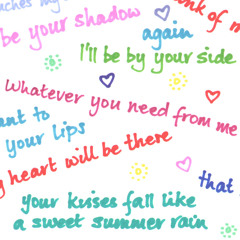 be your shadow
again
I'll be by your side
Whatever you need from me
your lips
heart will be there
that
your kisses fall like
a sweet summer rain